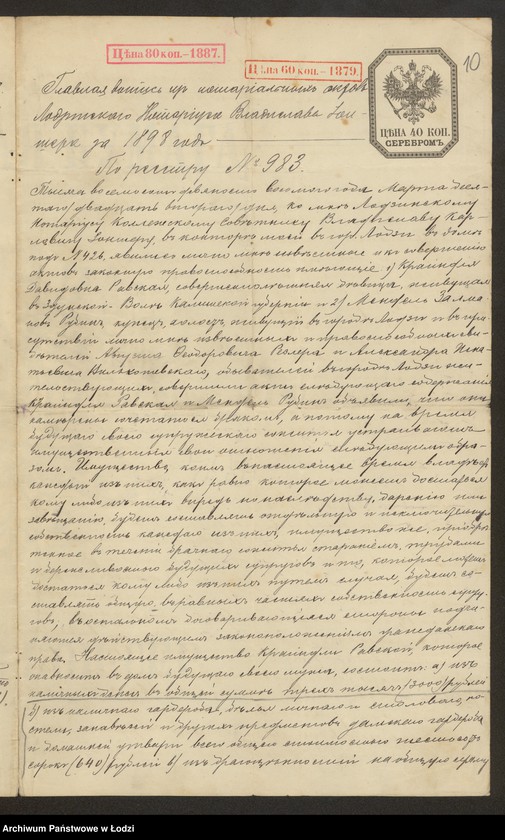 Цѣна 80 коп.–1887.
Цѣна 60 коп.–1879.
10
ЦѢНА 40 КОП.
СЕРЕБРОМЪ.
Главная выпись изъ нотаріальныхъ актовъ
Лодзинскаго Нотаріуса Владислава Іон-
шера за 1898 годъ
По реестру № 983.
Тысяча восемьсотъ девяносто восьмого года Марта деся-
таго /двадцать второго/ дня, ко мнѣ Лодзинскому
Нотаріусу Коллежскому Совѣтнику Владиславу Кар-
ловичу Іоншеру, въ контору мою въ гор. Лодзи въ домѣ
подъ № 426, явились лично мнѣ извѣстные и къ совершенію
актовъ законную правоспособность имѣющіе: 1) Крайндля
Давидовна Равская, совершеннолѣтняя дѣвица, живущая
въ Здунской-Волѣ Калишской губерніи и 2) Мендель Залма-
новъ Рубинъ, купецъ, холостъ, живущій въ городѣ Лодзи и въ при-
сутствіи лично мнѣ извѣстныхъ и правоспособныхъ сви-
дѣтелей Августа Теодоровича и Александра Игна-
тьевича обывателей въ городѣ Лодзи жи-
тельствующихъ, совершили актъ слѣдующаго содержанія:
Крайндля Равская и Мендель Рубинъ объявили, что они
намѣрены сочетаться бракомъ, а потому на время
будущаго своего супружескаго сожитія устраиваютъ
имущественныя свои отношенія слѣдующимъ обра-
зомъ. Имущество, коимъ въ настоящее время владѣетъ
каждый изъ нихъ, какъ равно которое можетъ достаться
кому либо изъ нихъ впредь по наслѣдству, даренію или
завѣщанію, будетъ составлять отдѣльную и исключительную
собственность каждаго изъ нихъ, имущество же, пріобрѣ-
тенное въ теченіи брачнаго сожитія стараніемъ, трудами
и бережливостью будущихъ супруговъ и то, которое можетъ
достаться кому либо изъ нихъ путемъ случая, будетъ со-
ставлять общую, въ равныхъ частяхъ собственность супру-
говъ, въ остальномъ договаривающіяся стороны подчи-
няются дѣйствующимъ законоположеніямъ гражданскаго
права. Настоящее имущество Крайндли Равской, которое
она вноситъ въ домъ будущаго своего мужа, состоитъ: а) изъ
наличныхъ денегъ въ общей суммѣ трехъ тысячъ /3000/ рублей
б) изъ наличнаго гардероба, бѣлья личнаго и столоваго, по-
стели, занавѣсей и другихъ предметовъ дамскаго гардероба
и домашней утвари всего общею стоимостью шестьсотъ
сорокъ /640/ рублей в) изъ драгоцѣнностей на общую сумму
Archiwum Państwowe w Łodzi